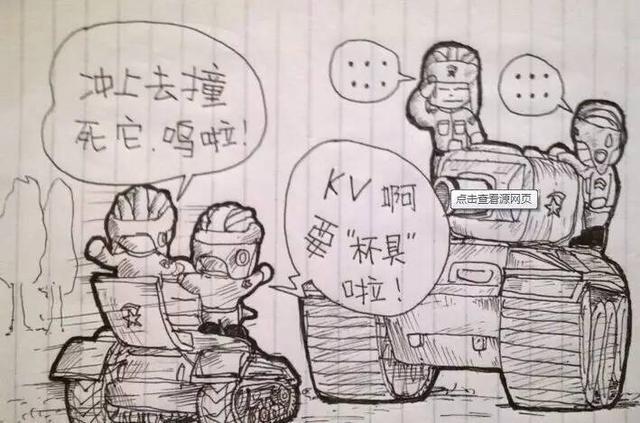 冲上去撞
死它.呜啦!
······
······
KV啊
要"杯具"
啦!
点击查看源网页